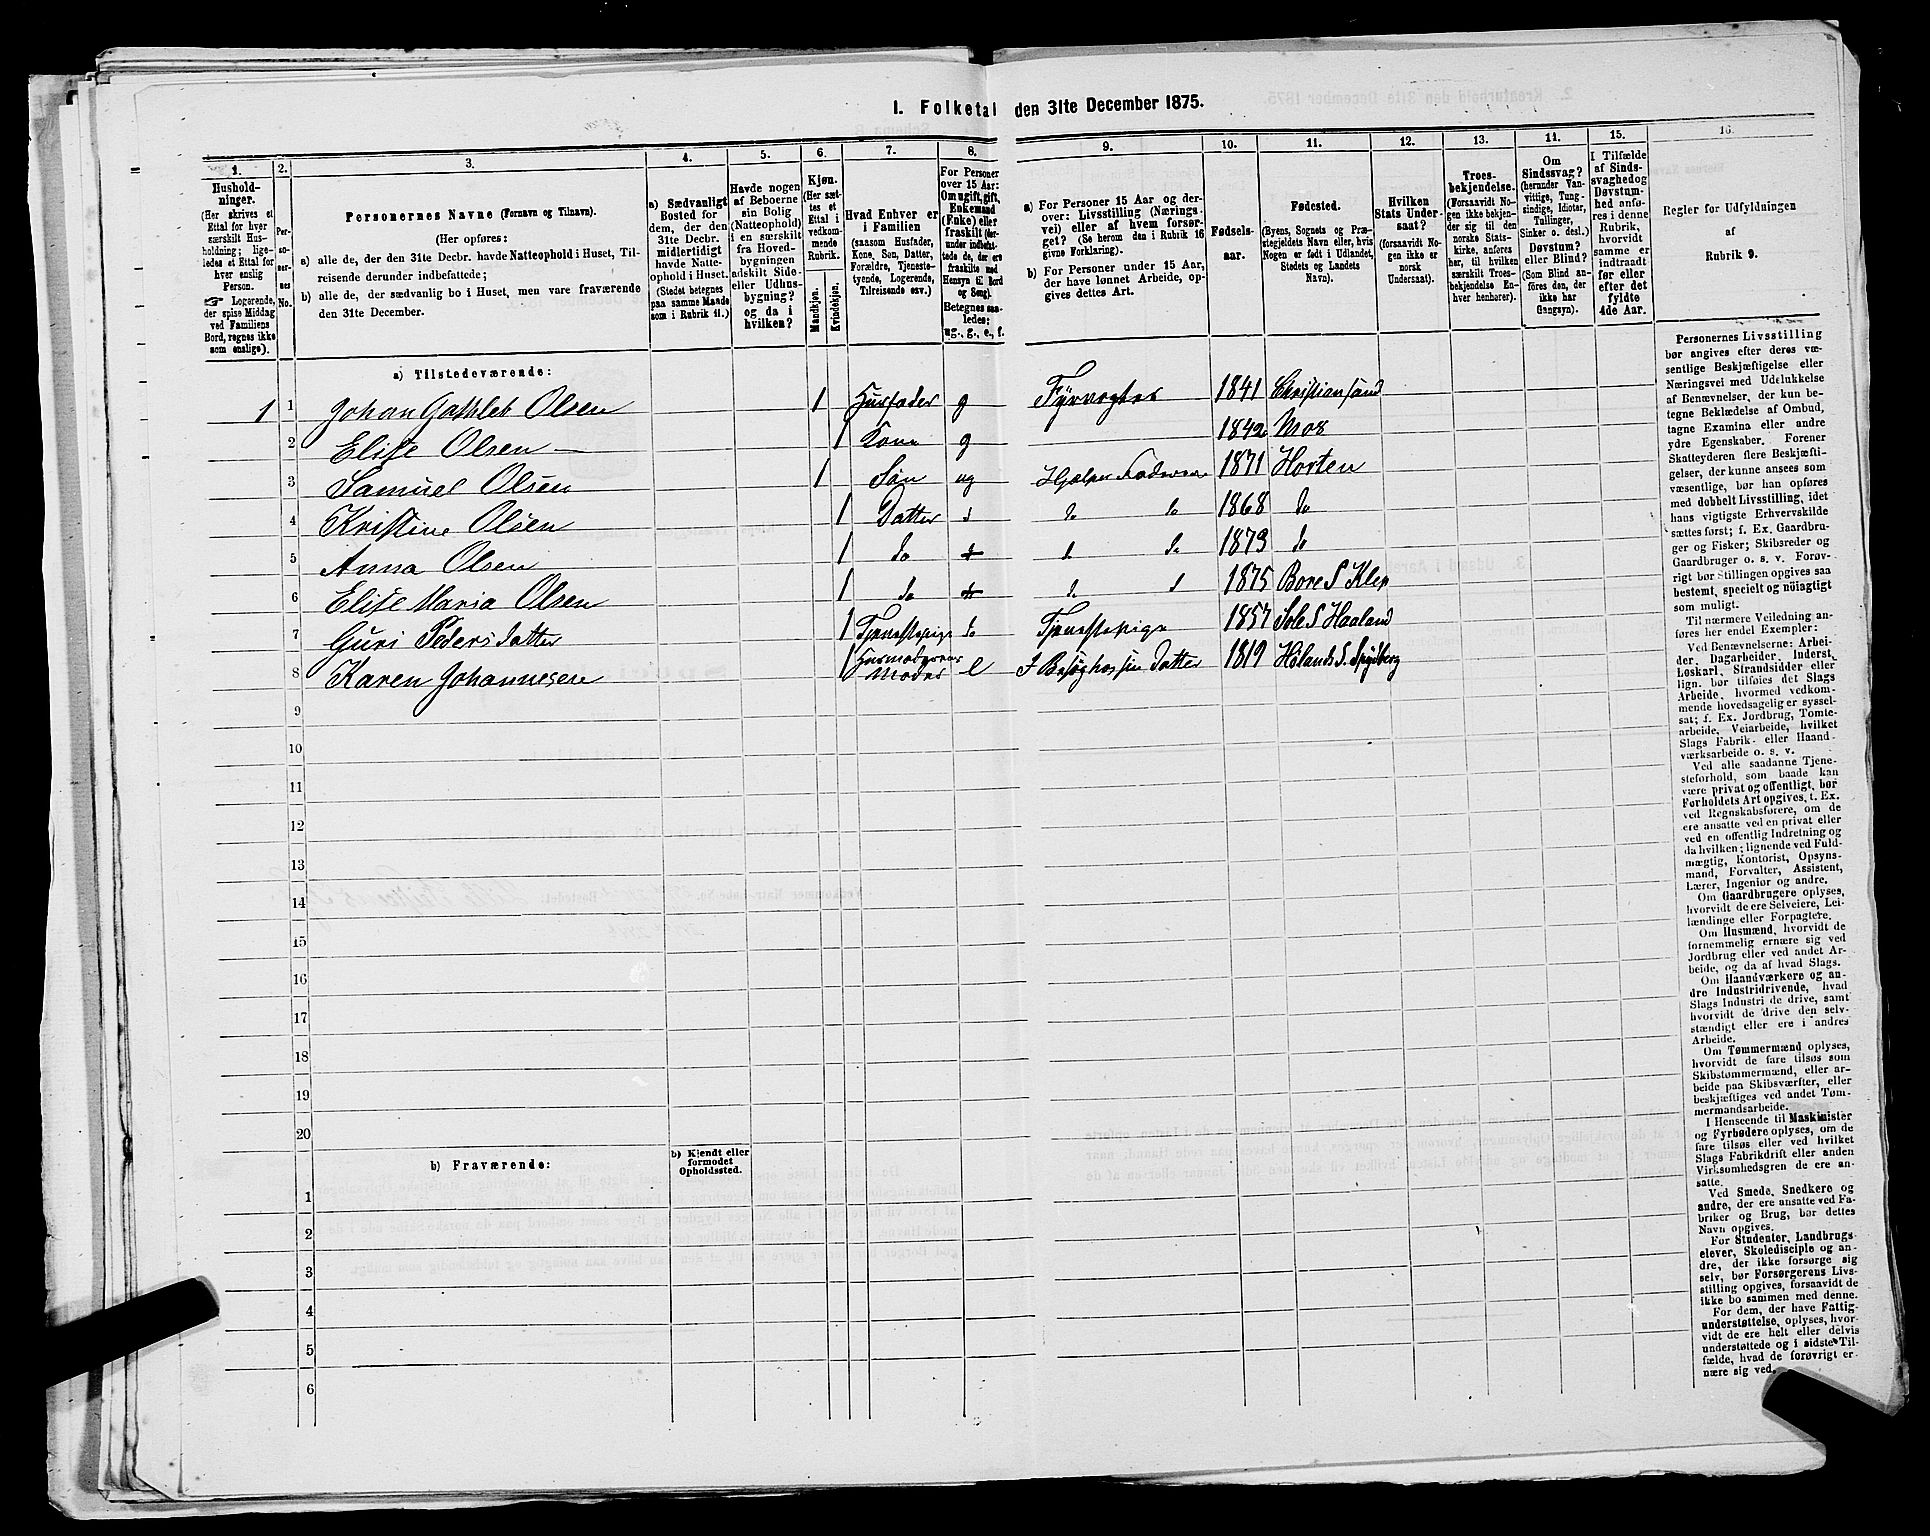 1. Folketal den 31te December 1875.
1. 2. 3. 4. 5. 6. 7. 8. 9. 10. 11. 12. 13. 14. 15. 16.
Hushold-
ninger.
(Her skrives et
Ettal for hver
særskilt Hus-
holdning; lige-
ledes et Ettal for
hver enslig
Person.
☞ Logerende,
der spise Middag
ved Familiens
Bord, regnes ikke
som enslige).
Per-
so-
ner-
nes
No.
Personernes Navne (Fornavn og Tilnavn).
(Her opføres:
a) alle de, der den 31te Decbr. havde Natteophold i Huset, Til-
reisende derunder indbefattede;
b) alle de, der sædvanlig bo i Huset, men vare fraværende
den 31te December.
a) Sædvanligt
Bosted for
dem, der den
31te Decbr.
midlertidigt
havde Natte-
ophold i Huset.
(Stedet betegnes
paa samme Maade
som i Rubrik 11.)
Havde nogen
af Beboerne
sin Bolig
(Natteophold)
i en særskilt
fra Hoved-
bygningen
adskilt Side-
eller Udhus-
bygning?
og da i
hvilken?
Kjøn.
(Her sæt-
tes et
Ettal i
vedkom-
mende
Rubrik.
Mandkjøn.
Kvindekjøn.
Hvad Enhver er
i Familien
(saasom Husfader,
Kone, Søn, Datter,
Forældre, Tjeneste-
tyende, Logerende,
Tilreisende osv.)
For Personer
over 15 Aar:
Om ugift, gift,
Enkemand
(Enke) eller
fraskilt (der-
under indbefat-
tede de, der ere
fraskilte med
Hensyn til Bord
og Seng).
Betegnes saa-
ledes:
ug., g., e., f.
a) For Personer 15 Aar og der-
over: Livsstilling (Nærings-
vei) eller af hvem forsør-
get? (Se herom den i Rubrik 16
givne Forklaring).
b) For Personer under 15 Aar,
der have lønnet Arbeide, op-
gives dettes Art.
Fødsels-
aar.
Fødested.
(Byens, Sognets og Præ-
stegjeldets Navn eller, hvis
Nogen er født i Udlandet,
Stedets og Landets
Navn).
Hvilken
Stats Under-
saat?
(forsaavidt No-
gen ikke er
norsk
Undersaat).
Troes-
bekjendelse.
(Forsaavidt No-
gen ikke bekjen-
der sig til den
norske Stats-
kirke, anføres
her, til hvilken
særskilt Troes-
bekjendelse En-
hver henhører).
Om
Sindssvag?
(herunder Van-
vittige, Tung-
sindige, Idioter,
Tullinger,
Sinker o. desl.)
Døvstum?
eller Blind?
(Som Blind an-
føres den, der
ikke har
Gangsyn).
I Tilfælde
af Sinds-
svaghed og
Døvstum-
hed anfø-
res i denne
Rubrik,
hvorvidt
samme er
indtraadt
før eller
efter det
fyldte
4de Aar.
Regler for Udfyldningen
af
Rubrik 9.
a) Tilstedeværende:
1 1 Johan Gothleb Olsen 1 Husfader g Fyrvogter 1841 Christiansand
2 Elise Olsen — 1 Kone g 1842 Mos
3 Samuel Olsen 1 Søn ug Hjælper Faderen 1871 Horten
4 Kristine Olsen 1 Datter d do do 1868 do
5 Anna Olsen 1 do do 1873 do
6 Elise Maria Olsen 1 do 1875 Bore S Klep
7 Guri Pedersdatter 1 Tjenestepige do Tjenestepige 1857 Sole S Haaland
8 Karen Johannesen 1 Husmoderens Moder e I Besøg hos sin Datter 1819 Hølands S. Spydberg
9
10
11
12
13
14
15
16
17
18
19
20
b) Fraværende:
b) Kjendt eller
formodet
Opholdssted.
1
2
3
4
5
6
Personernes Livsstilling
bør angives efter deres væ-
sentlige Beskjæftigelse eller
Næringsvei med Udelukkelse
af Benævnelser, der kun be-
tegne Beklædelse af Ombud,
tagne Examina eller andre
ydre Egenskaber. Forener
Skatteyderen flere Beskjæfti-
gelser, der kunne ansees som
væsentlige, bør han opføres
med dobbelt Livsstilling, idet
hans vigtigste Erhvervskilde
sættes først; f. Ex. Gaardbru-
ger og Fisker; Skibsreder og
Gaardbruger o. s. v. Forøv-
rigt bør Stillingen opgives saa
bestemt, specielt og nöiagtigt
som muligt.
Til nærmere Veiledning an-
føres her endel Exempler:
Ved Benævnelserne: Arbei-
der, Dagarbeider, Inderst,
Løskarl, Strandsidder eller
lign. bør tilføies det Slags
Arbeide, hvormed vedkom-
mende hovedsagelig er syssel-
sat; f. Ex. Jordbrug, Tomte-
arbeide, Veiarbeide, hvilket
Slags Fabrik- eller Haand-
værksarbeide o. s. v.
Ved alle saadanne Tjene-
steforhold, som baade kan
være privat og offentligt, bør
Forholdets Art opgives, t. Ex.
ved Regnskabsførere, om de
ere ansatte ved en privat eller
ved en offentlig Indretning og
da hvilken; lignende ved Fuld-
mægtig, Kontorist, Opsyns-
mand, Forvalter, Assistent,
Lærer, Ingeniør og andre.
Om Gaardbrugere oplyses,
hvorvidt de ere Selveiere, Lei-
lændinge eller Forpagtere.
Om Husmænd, hvorvidt de
fornemmelig ernære sig ved
Jordbrug eller ved andet Ar-
beide, og da af hvad Slags.
Om Haandværkere og an-
dre Industridrivende, hvad
Slags Industri de drive, samt
hvorvidt de drive den selv-
stændigt eller ere i andres
Arbeide.
Om Tømmermænd oplyses,
hvorvidt de fare tilsøs som
Skibstømmermænd, eller ar-
beide paa Skibsværfter, eller
beskjæftiges ved andet Tøm-
mermandsarbeide.
I Henseende til Maskinister
og Fyrbødere oplyses, om de
fare tilsøs eller ved hvilket
Slags Fabrikdrift eller anden
Virksomhedsgren de ere an-
satte.
Ved Smede, Snedkere og
andre, der ere ansatte ved Fa-
briker og Brug, bør dettes
Navn opgives.
For Studenter, Landbrugs-
elever, Skoledisciple og an-
dre, der ikke forsørge sig
selv, bør Forsørgerens Livs-
stilling opgives, forsaavidt de
ikke bo sammen med denne.
For dem, der have Fattig-
understøttelse, oplyses, hvor-
vidt de ere helt eller delvis
understøttede og i sidste Til-
fælde, hvad de forøvrigt er-
nære sig ved.